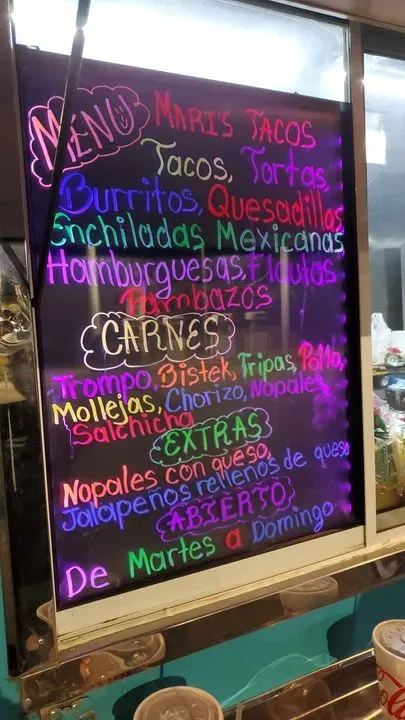 MENU MARI'S TACOS
Tacos, Tortas,
Burritos, Quesadillas
Enchiladas Mexicanas
Hamburguesas, Flautas
Pambazos
CARNES
Trompo, Bistek, Tripas, Pollo,
Mollejas, Chorizo, Nopales
Salchicha
EXTRAS
Nopales con queso,
Jalapeños rellenos de queso
ABIERTO
De Martes a Domingo